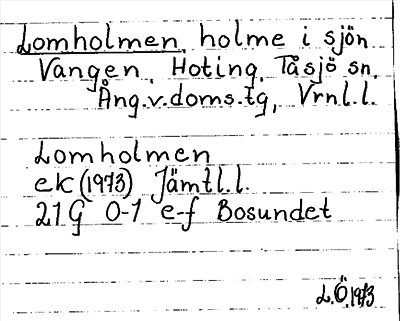 Lomholmen, holme i sjön
Vangen, Hoting, Tåsjö sn,
Ång.v.doms.tg, Vrnl.l.
Lomholmen
ek (1973) Jämtl.l.
21G 0-1 e-f Bosundet
L.Ö.1973